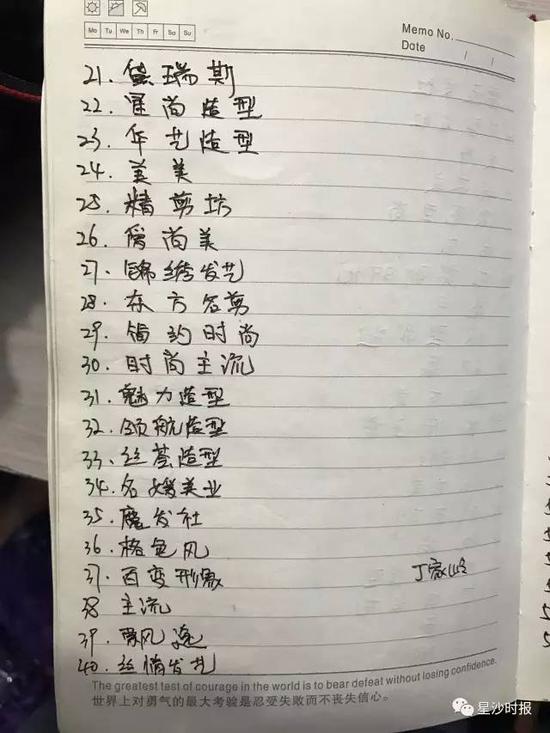 Memo No.
Mo Tu We Th Fr Sa Su
Date / /
21. 黛瑞斯
22. 尚造型
23. 年艺造型
24. 美美
25. 精剪坊
26. 尚美
27. 锦绣发艺
28. 东方名剪
29. 简约时尚
30. 时尚主流
31. 魅力造型
32. 领航造型
33. 丝荟造型
34. 名媛美业
35. 魔发社
36. 格色风
37. 百变形象 丁家岭
38 主流
39. 飘风逸
40. 丝情发艺
The greatest test of courage in the world is to bear defeat without losing confidence.
世界上对勇气的最大考验是忍受失败而不丧失信心。
星沙时报